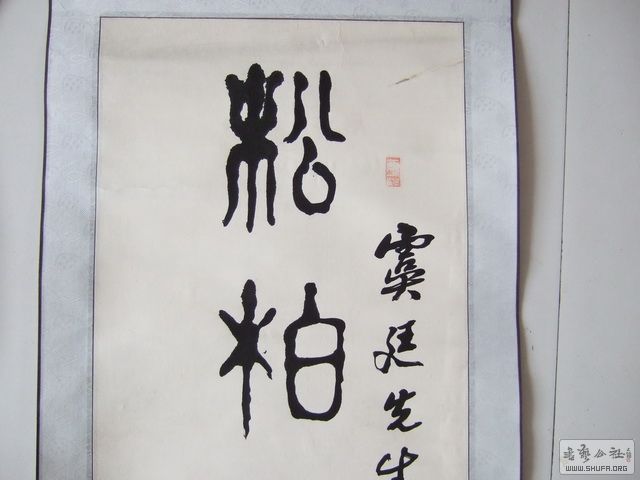 虞廷先生
松柏
书艺公社
WWW.SHUFA.ORG